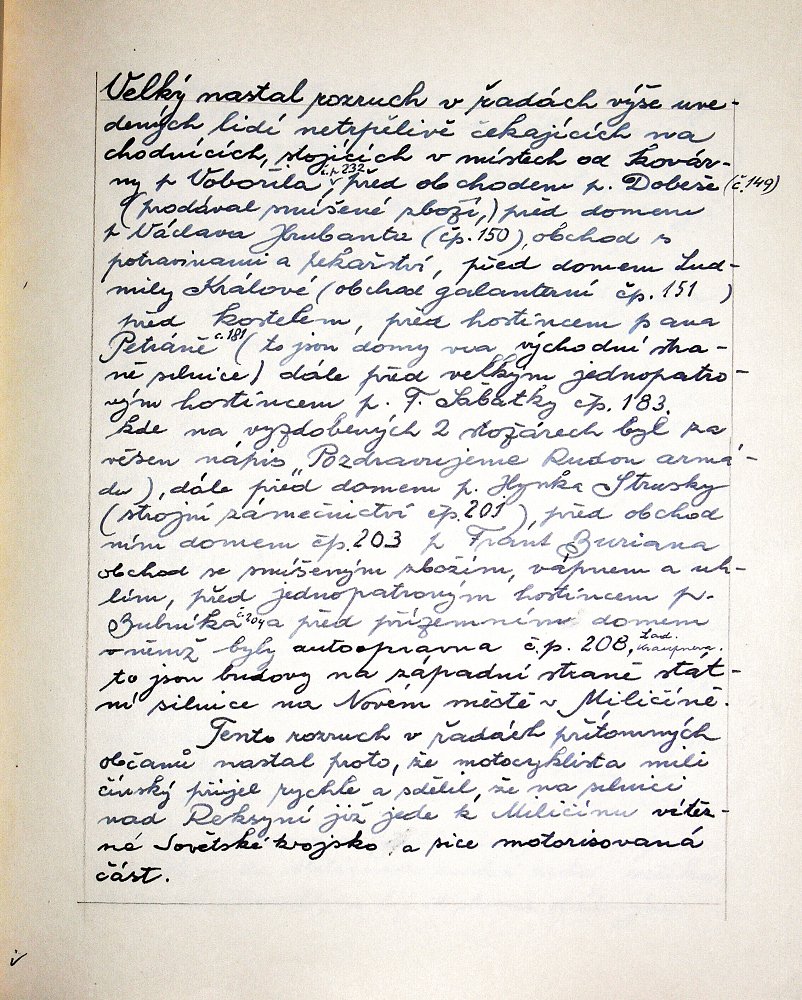 Velký nastal rozruch v řadách výše uve-
dených lidí netrpělivě čekajících na
chodnících, stojících v místech od kovár-
ny p Vobořila, č.p 232 před obchodem p. Dobeše (č.149)
(prodával smíšené zboží,) před domem
p Václava Hrubanta (čp. 150), obchod s
potravinami a pekařství, před domem Lud-
mily Králové (obchod galanterní čp. 151 )
před kostelem, před hostincem pana
Petráně č.181 (to jsou domy na východní stra-
ně silnice) dále před velkým jednopatro-
vým hostincem p. F. Sabatky čp. 183.
kde na vyzdobených 2 stožárech byl za
věšen nápis "Pozdravujeme Rudou armá-
du), dále před domem p. Hynka Strusky
(strojní zámečnictví čp. 201 ), před obchod
ním domem čp. 203 p Frant. Buriana
obchod se smíšeným zbožím, vápnem a uh-
lím, před jednopatrovým hostincem p.
Bubníka č.204 a před přízemním domem
v němž byly autoopravna č.p. 208, Lad.
to jsou budovy na západní straně stát-
ní silnice na Novém městě v Miličíně.
Tento rozruch v řadách přítomných
občanů nastal proto, že motocyklista mili
čínský přijel rychle a sdělil, že na silnici
nad Reksyní již jede k Miličínu vítěz-
né Sovětské vojsko a sice motorisovaná
část.